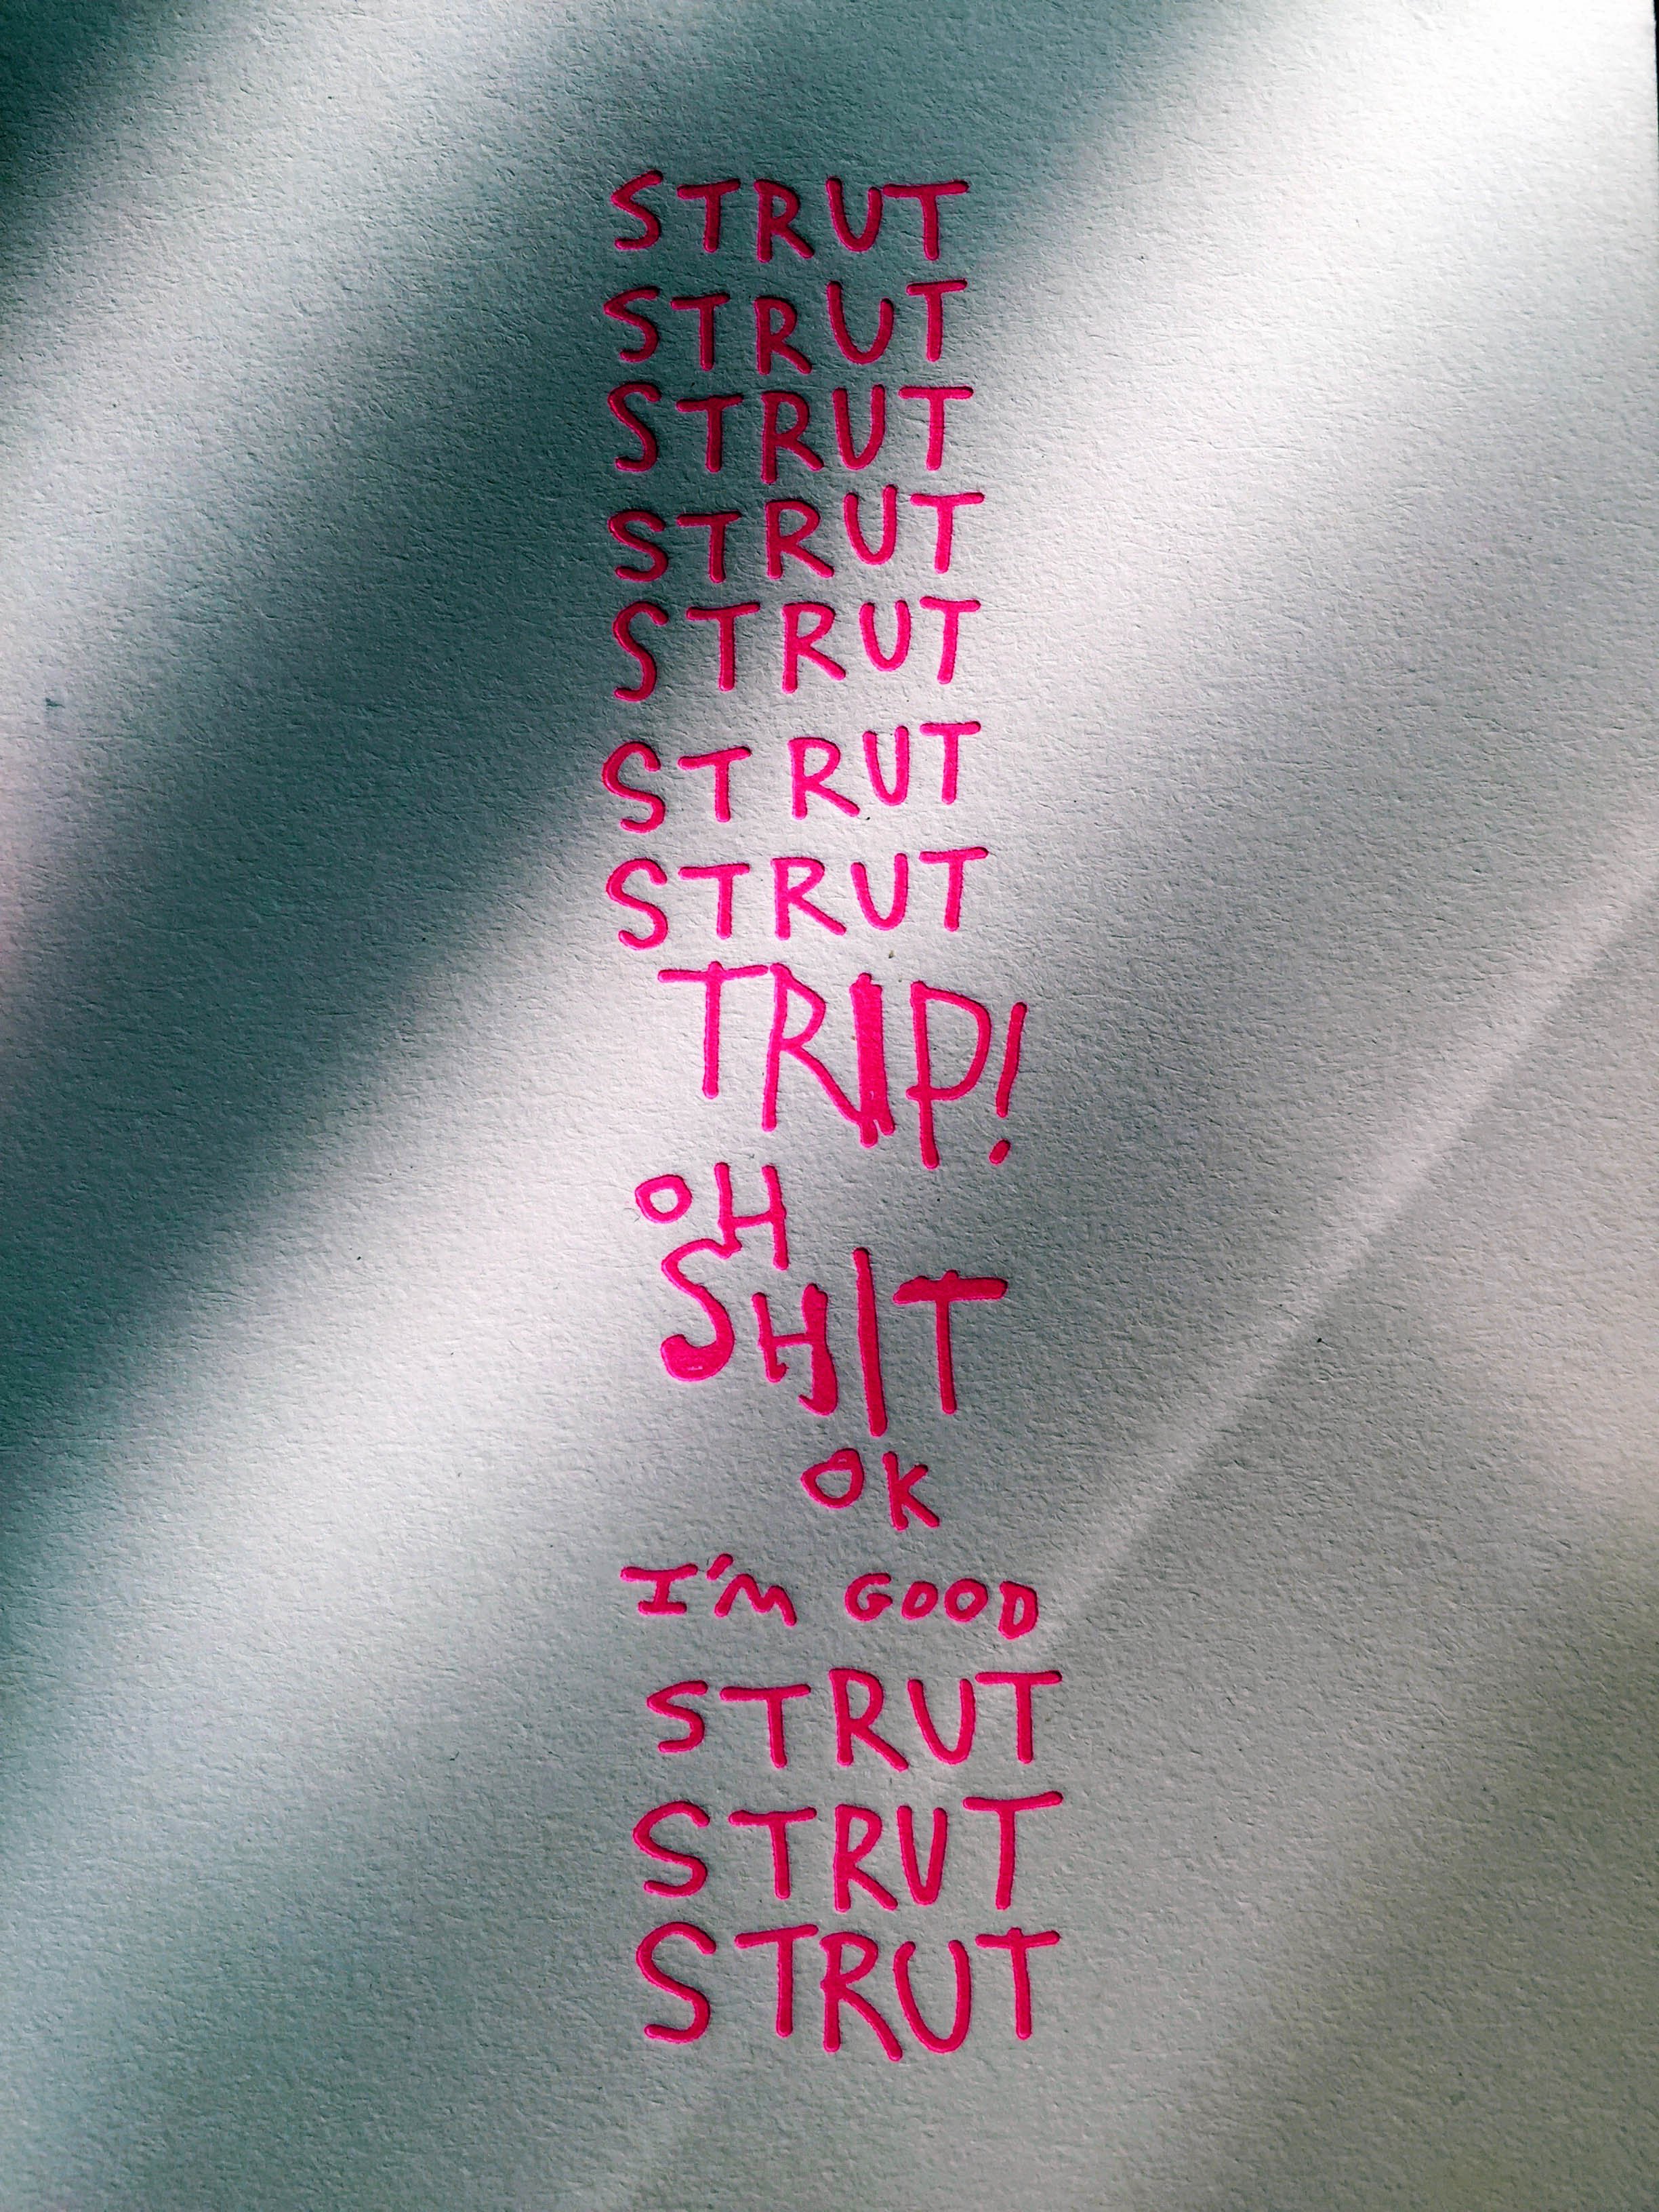 STRUT
STRUT
STRUT
STRUT
STRUT
STRUT
STRUT
TRIP!
OH
SHIT
OK
I'M GOOD
STRUT
STRUT
STRUT